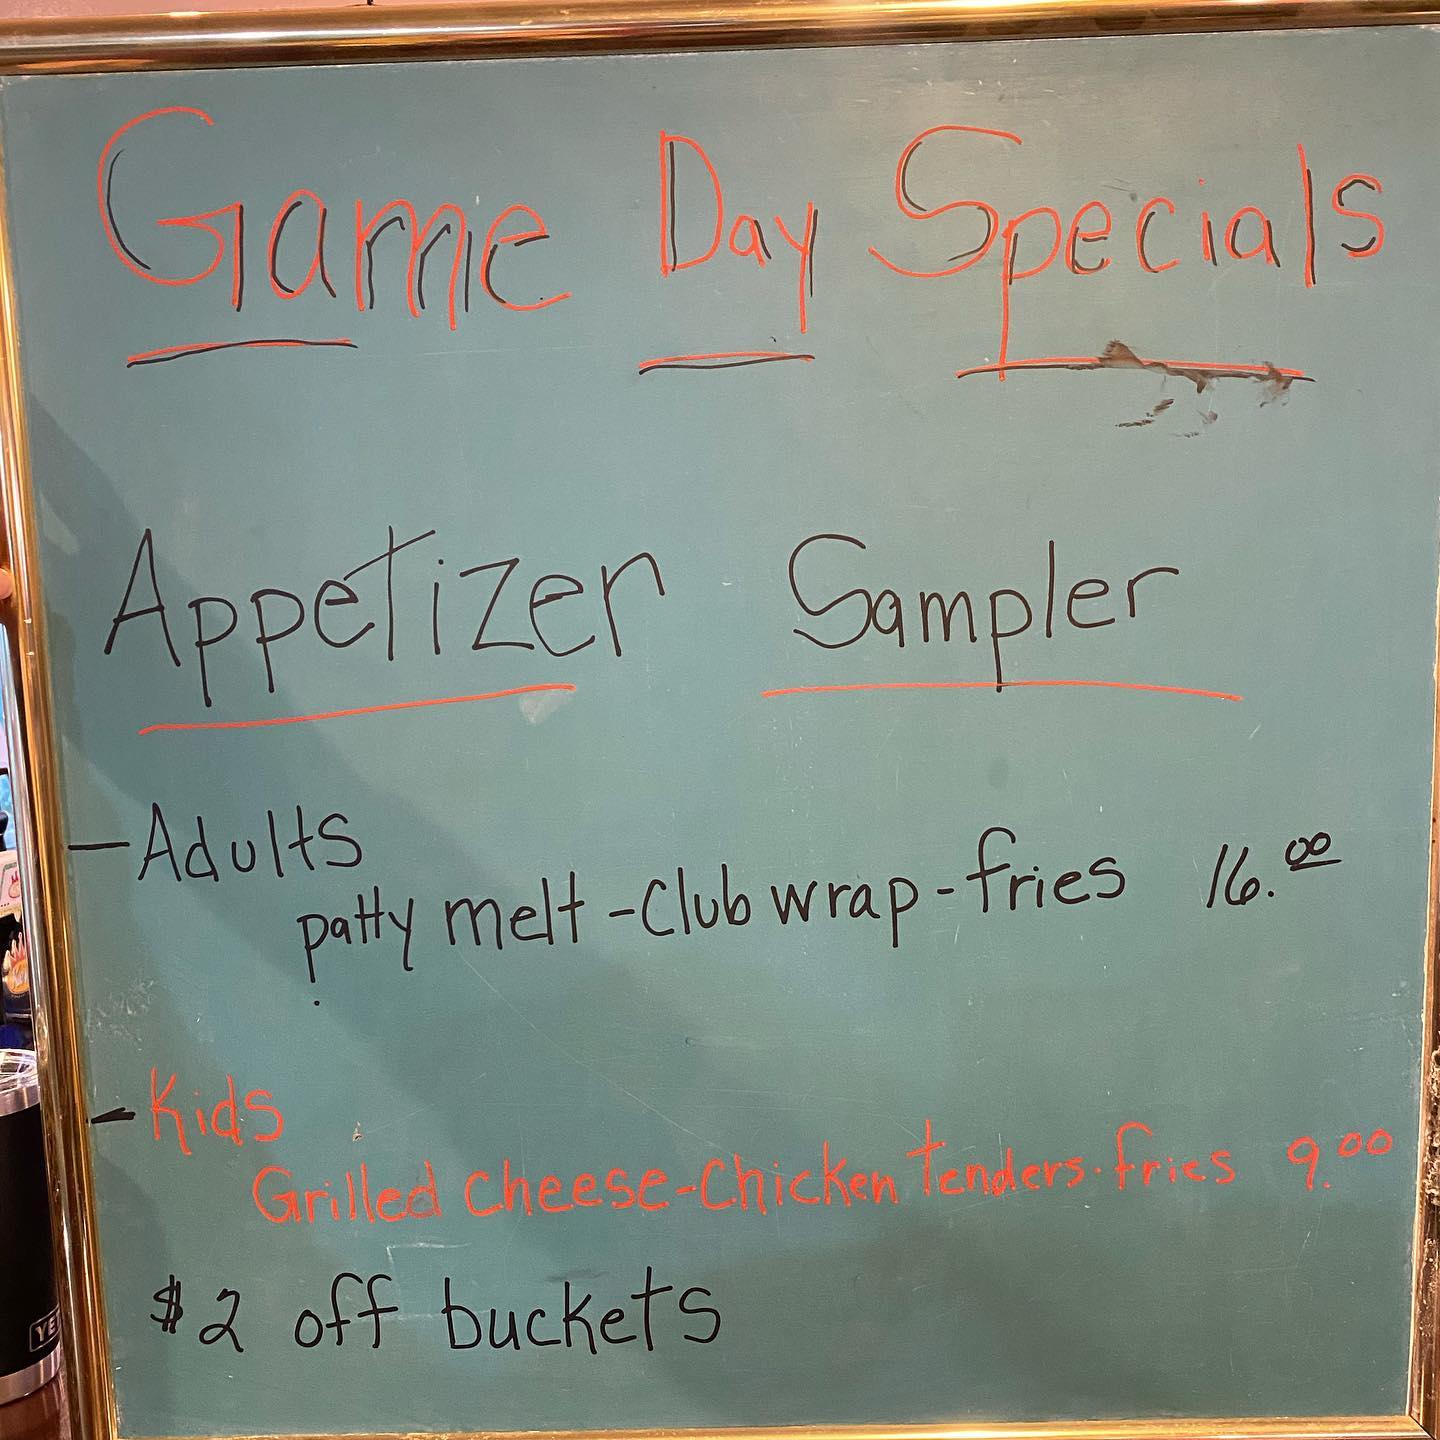 Game Day Specials
Appetizer Sampler
- Adults
patty melt - Club wrap - fries 16.00
- Kids
Grilled Cheese - Chicken Tenders. fries 9.00
$2 off buckets